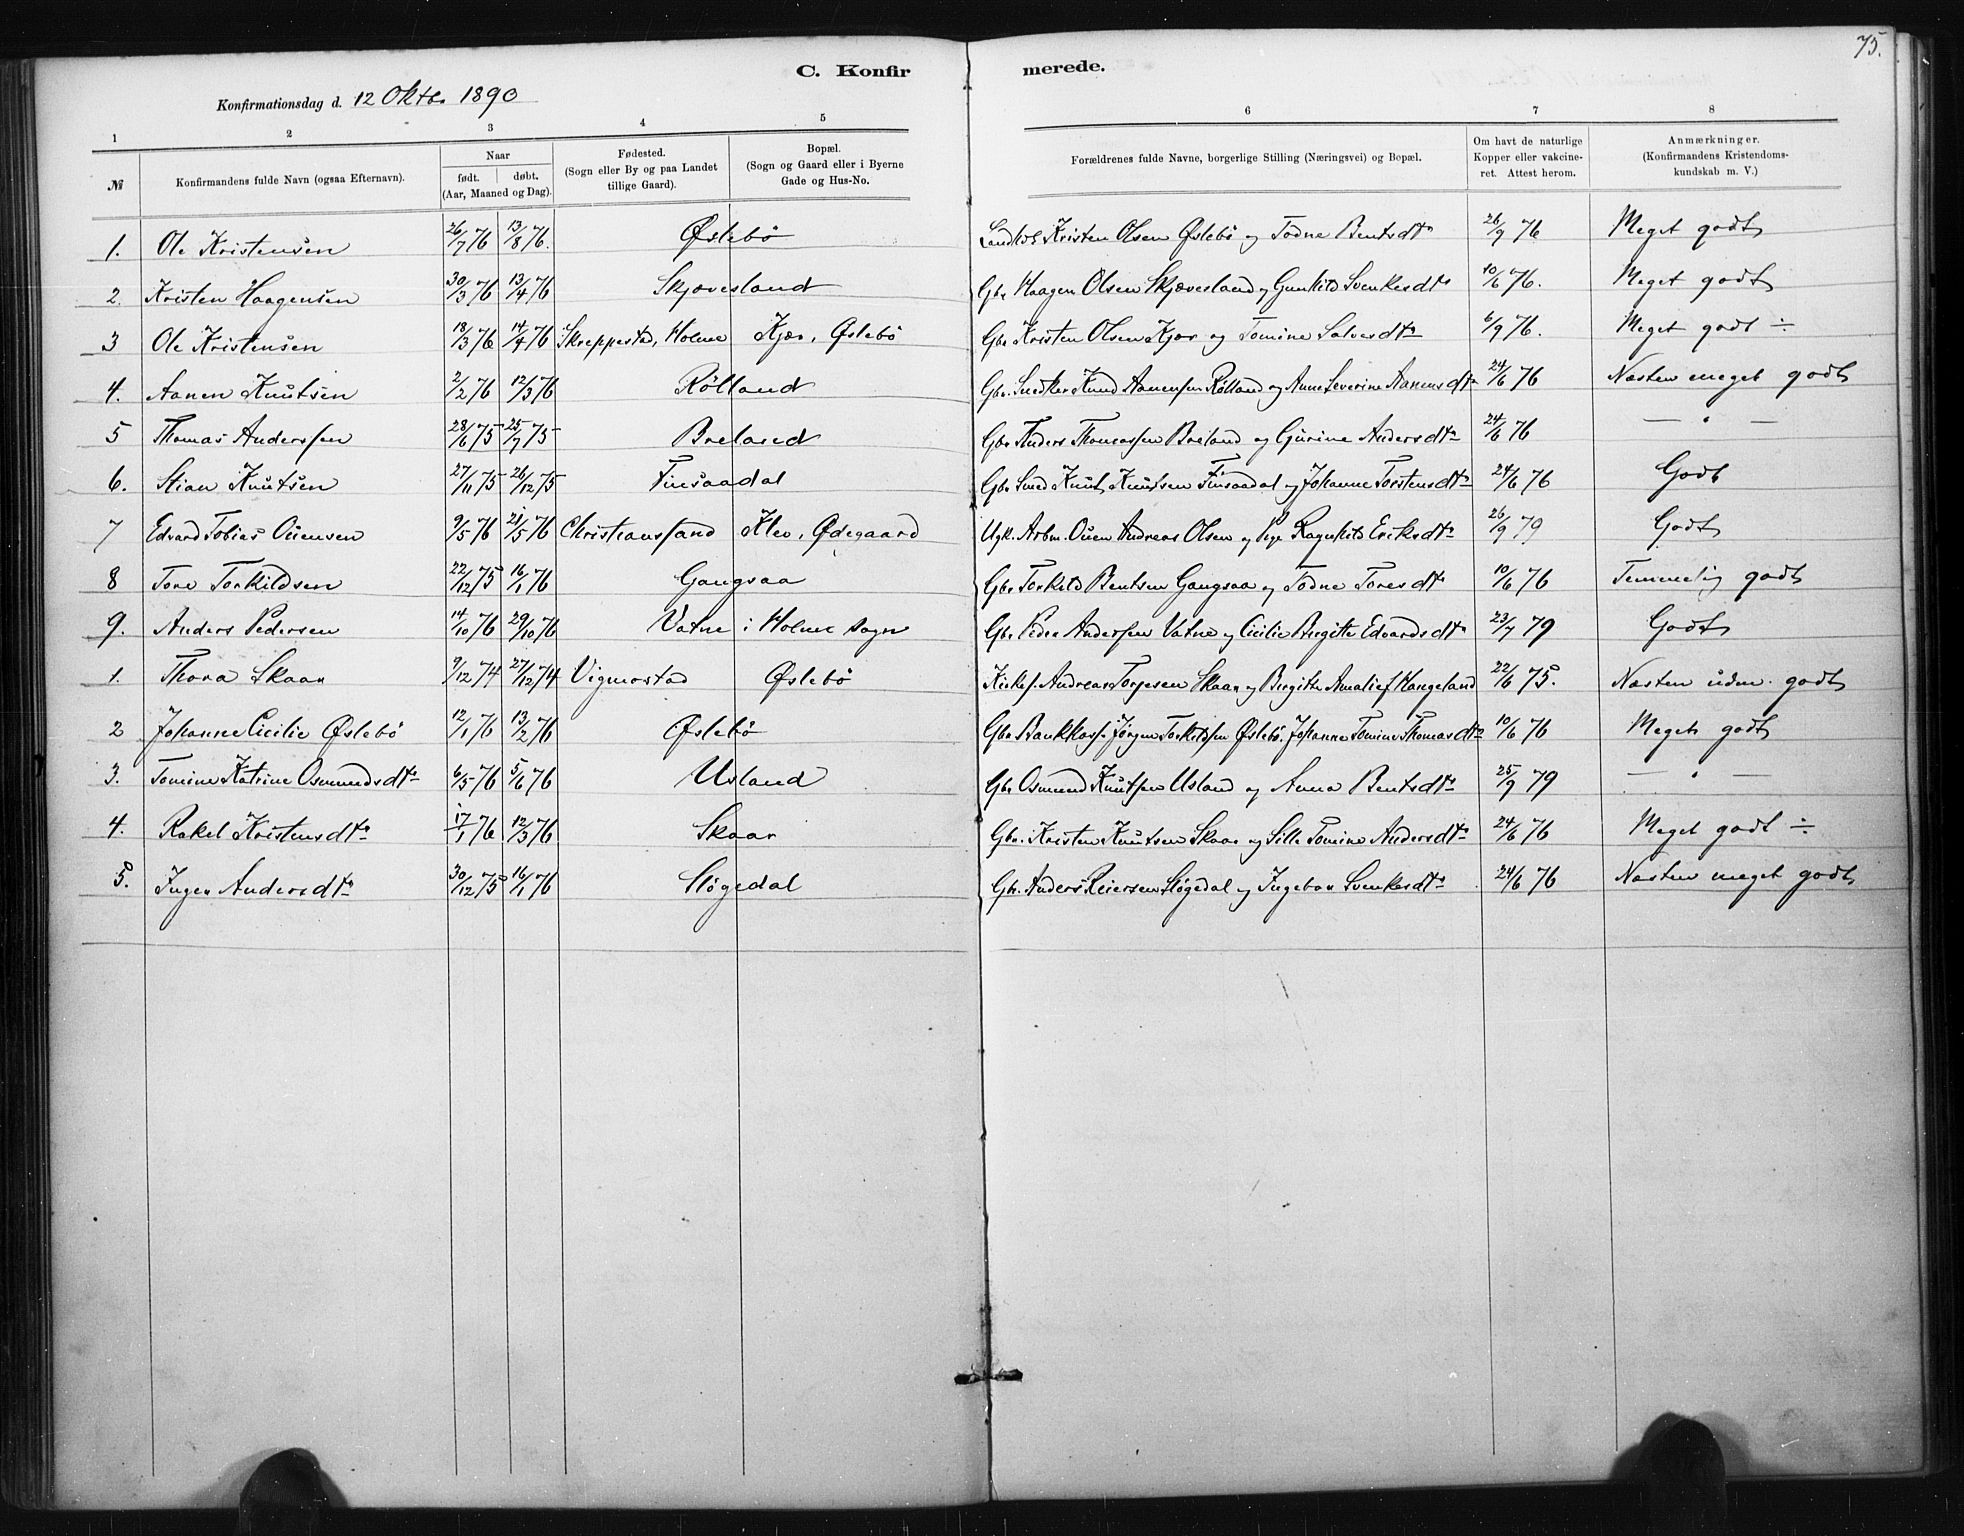 75.
C. Konfirmerede.
Konfirmationsdag d. 12 Oktb. 1890
1 2 3 4 5 6 7 8
№ Konfirmandens fulde Navn (ogsaa Efternavn). Naar født. døbt. (Aar, Maaned og Dag). Fødested. (Sogn eller By og paa Landet tillige Gaard). Bopæl. (Sogn og Gaard eller i Byerne Gade og Hus-No. Forældrenes fulde Navne, borgerlige Stilling (Næringsvei) og Bopæl. Om havt de naturlige Kopper eller vakcineret. Attest herom. Anmærkninger. (Konfirmandens Kristendomskundskab m. V.)
1. Ole Kristensen 26/7 76 13/8 76. Øslebö Kristen Olsen Øslebö og Todne Bentsdtr 26/9 76 Meget godt
2. Kristen Haagensen 30/3 76 13/4 76 Skjævesland Gbr Haagen Olsen Skjævesland og Gunhild Svenkesdtr 10/6 76. Meget godt
3 Ole Kristensen 18/3 76 14/4 76 Skreppestad, Holme Kjær, Øslebö Gbr Kristen Olsen Kjær og Tomine Salvesdtr 6/9 76. Meget godt ÷
4. Aanen Knutsen 2/2 76 12/3 76 Rølland Gbr. Snedker Knud Aanensen Rølland og Anne Severine Aanensdtr 24/6 76 Næsten meget godt
5 Thomas Anderssen 28/6 75 25/7 75 Breland Gbr Anders Thomassen Breland og Gurine Andersdtr 24/6 76 — " —
6. Stian Knutsen 27/11 75 26/12 75 Finsaadal Gbr Smed Knut Knutsen Finsaadal og Johanne Torstensdtr 24/6 76 Godt
7 Edvard Tobias Ouensen 9/5 76 21/5 76 Christianssand Klev, Ødegaard Ugk. Arbm. Ouen Andreas Olsen og Pige Ragnhild Eriksdtr 26/9 79 Godt
8 Tore Torkildsen 22/12 75 16/1 76 Gangsaa Gbr Torkild Bentsen Gangsaa og Todne Toresdtr 10/6 76 Temmelig godt
9. Anders Pedersen 14/10 76 29/10 76 Vatne i Holme sogn Gbr Peder Andersen Vatne og Cicilie Birgitte Edvardsdtr 23/7 79 Godt
1. Thora Skaar 9/12 74 27/12 74 Vigmostad Øslebö Kirkes. Andreas Torjesen Skaar og Birgitte Amalie f. Hangeland 22/6 75. Næsten udm. godt
2 Johanne Cicilie Øslebö 12/1 76 13/2 76 Øslebö Gbr Bankkass. Jørgen Torkildsen Øslebö. Johanne Tomine Thomasdtr 10/6 76 Meget godt
3. Tomine Katrine Osmundsdtr 6/5 76 5/6 76 Usland Gbr Osmund Knutsen Usland og Anna Bentsdtr 25/9 79 — " —
4. Rakel Kristensdtr 17/1 76 12/3 76 Skaar Gbr. Kristen Knutsen Skaar og Sille Tomine Andersdtr 24/6 76 Meget godt ÷
5. Inger Andersdtr 30/12 75 16/1 76 Støgedal Gbr. Anders Reiersen Støgedal og Ingebor Svenkesdtr 24/6 76 Næsten meget godt